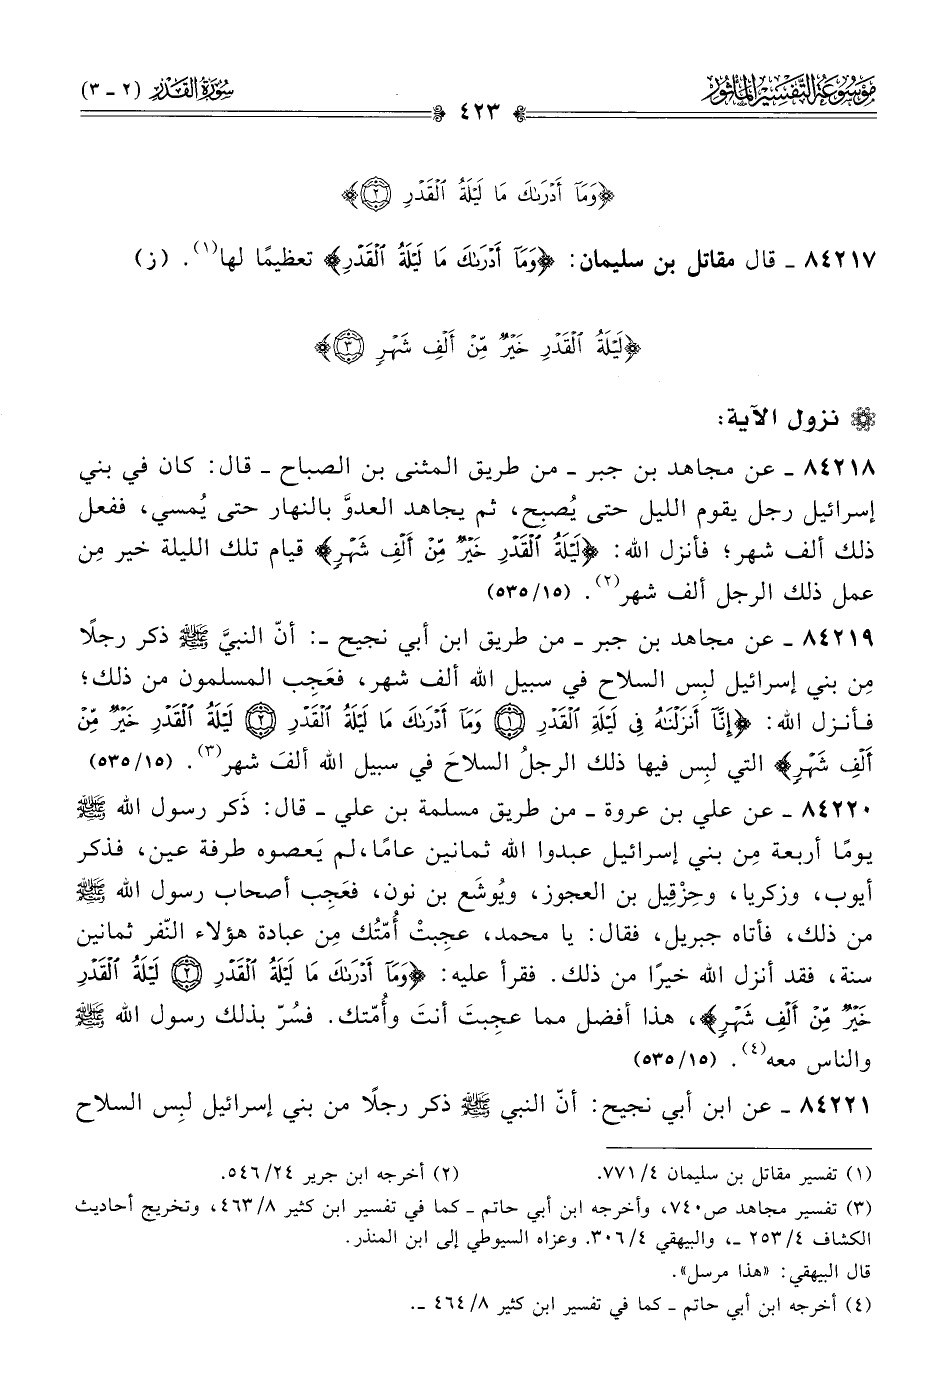 موسوعة التفسير المأثور
سورة القدر (٢ - ٣)
٤٢٣
﴿وَمَآ أَدْرَىٰكَ مَا لَيْلَةُ ٱلْقَدْرِ ۝٢﴾
٨٤٢١٧ ـ قال مقاتل بن سليمان: ﴿وَمَآ أَدْرَىٰكَ مَا لَيْلَةُ ٱلْقَدْرِ﴾ تعظيمًا لها(١). (ز)
﴿لَيْلَةُ ٱلْقَدْرِ خَيْرٌ مِّنْ أَلْفِ شَهْرٍ ۝٣﴾
نزول الآية:
٨٤٢١٨ ـ عن مجاهد بن جبر ـ من طريق المثنى بن الصباح ـ قال: كان في بني
إسرائيل رجل يقوم الليل حتى يُصبِح، ثم يجاهد العدوَّ بالنهار حتى يُمسي، ففعل
ذلك ألف شهر؛ فأنزل الله: ﴿لَيْلَةُ ٱلْقَدْرِ خَيْرٌ مِّنْ أَلْفِ شَهْرٍ﴾ قيام تلك الليلة خير مِن
عمل ذلك الرجل ألف شهر(٢). (٥٣٥/١٥)
٨٤٢١٩ ـ عن مجاهد بن جبر ـ من طريق ابن أبي نجيح ـ: أنّ النبيَّ ﷺ ذكر رجلًا
مِن بني إسرائيل لبِس السلاح في سبيل الله ألف شهر، فعَجِب المسلمون من ذلك؛
فأنزل الله: ﴿إِنَّآ أَنزَلْنَٰهُ فِى لَيْلَةِ ٱلْقَدْرِ ۝١ وَمَآ أَدْرَىٰكَ مَا لَيْلَةُ ٱلْقَدْرِ ۝٢ لَيْلَةُ ٱلْقَدْرِ خَيْرٌ مِّنْ
أَلْفِ شَهْرٍ﴾ التي لبِس فيها ذلك الرجلُ السلاحَ في سبيل الله ألفَ شهر(٣). (٥٣٥/١٥)
٨٤٢٢٠ ـ عن علي بن عروة ـ من طريق مسلمة بن علي ـ قال: ذَكر رسول الله ﷺ
يومًا أربعة مِن بني إسرائيل عبدوا الله ثمانين عامًا،لم يَعصوه طرفة عين، فذكر
أيوب، وزكريا، وحِزْقِيل بن العجوز، ويُوشَع بن نون، فعَجِب أصحاب رسول الله ﷺ
من ذلك، فأتاه جبريل، فقال: يا محمد، عجِبتْ أُمّتُك مِن عبادة هؤلاء النّفر ثمانين
سنة، فقد أنزل الله خيرًا من ذلك. فقرأ عليه: ﴿وَمَآ أَدْرَىٰكَ مَا لَيْلَةُ ٱلْقَدْرِ ۝٢ لَيْلَةُ ٱلْقَدْرِ
خَيْرٌ مِّنْ أَلْفِ شَهْرٍ﴾، هذا أفضل مما عجِبتَ أنتَ وأُمّتك. فسُرّ بذلك رسول الله ﷺ
والناس معه(٤). (٥٣٥/١٥)
٨٤٢٢١ ـ عن ابن أبي نجيح: أنّ النبي ﷺ ذكر رجلًا من بني إسرائيل لبِس السلاح
(١) تفسير مقاتل بن سليمان ٤/ ٧٧١.
(٢) أخرجه ابن جرير ٢٤/ ٥٤٦.
(٣) تفسير مجاهد ص٧٤٠، وأخرجه ابن أبي حاتم ـ كما في تفسير ابن كثير ٨/ ٤٦٣، وتخريج أحاديث
الكشاف ٤/ ٢٥٣ ـ، والبيهقي ٤/ ٣٠٦. وعزاه السيوطي إلى ابن المنذر.
قال البيهقي: «هذا مرسل».
(٤) أخرجه ابن أبي حاتم ـ كما في تفسير ابن كثير ٨/ ٤٦٤ ـ.